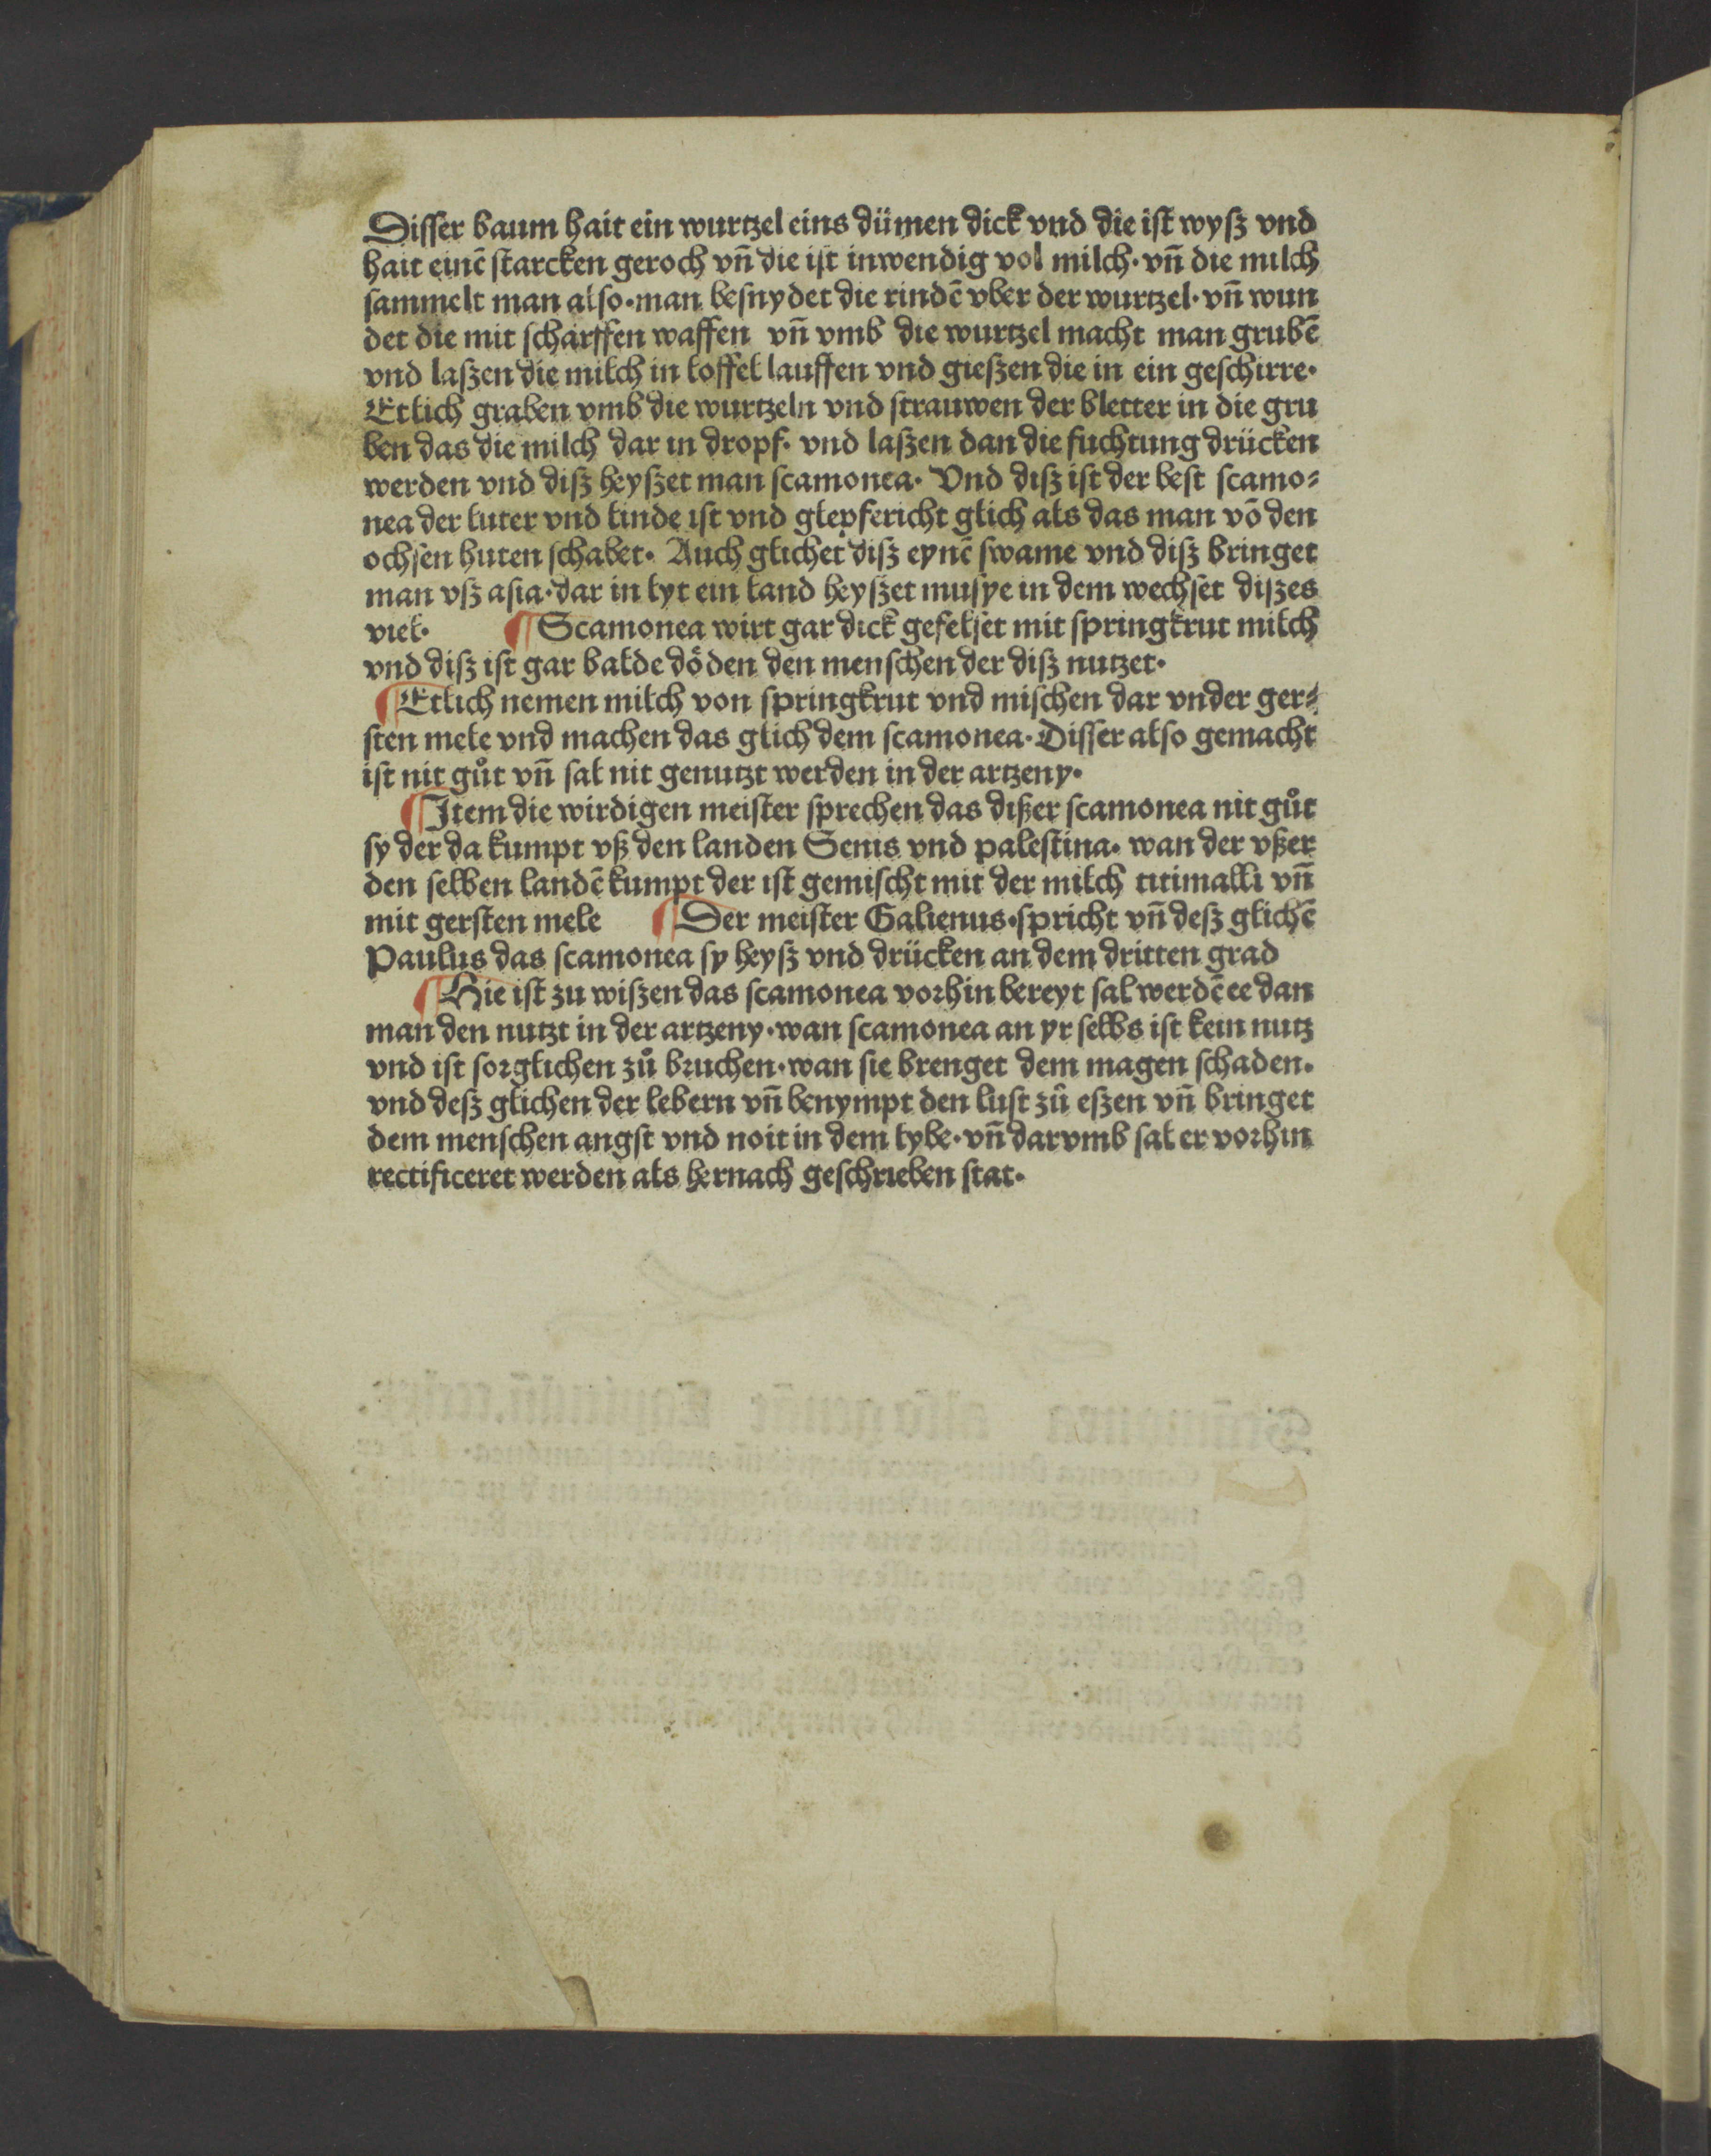 Disser baum hait ein wurtzel eins dümen dick vnd die ist wysz vnd
hait einē starcken geroch vn̄ die ist inwendig vol milch· vn̄ die milch
sammelt man also· man besnydet die rindē vber der wurtzel· vn̄ wun
det die mit scharffen waffen vn̄ vmb die wurtzel macht man grubē
vnd laszen die milch in loffel lauffen vnd gieszen die in ein geschirre·
Etlich graben vmb die wurtzeln vnd strauwen der bletter in die gru
ben das die milch dar in dropf· vnd laszen dan die fuchtung drücken
werden vnd disz heyszet man scamonea· Vnd disz ist der best scamo⸗
nea der luter vnd linde ist vnd glepfericht glich als das man vō den
ochsen huten schabet· Auch glichet disz eynē swame vnd disz bringet
man vsz asia· dar in lyt ein land heyszet musye in dem wechset diszes
viel· ¶ Scamonea wirt gar dick gefelset mit springkrut milch
vnd disz ist gar balde döden den menschen der disz nutzet·
¶ Etlich nemen milch von springkrut vnd mischen dar vnder ger⸗
sten mele vnd machen das glich dem scamonea· Disser also gemacht
ist nit gůt vn̄ sal nit genutzt werden in der artzeny·
¶ Item die wirdigen meister sprechen das dißer scamonea nit gůt
sy der da kumpt vß den landen Senis vnd palestina· wan der vßer
den selben landē kumpt der ist gemischt mit der milch titimalli vn̄
mit gersten mele ¶ Der meister Galienus· spricht vn̄ desz glichē
Paulus das scamonea sy heysz vnd drücken an dem dritten grad
¶ Hie ist zu wiszen das scamonea vorhin bereyt sal werdē ee dan
man den nutzt in der artzeny· wan scamonea an yr selbs ist kein nutz
vnd ist sorglichen zů bruchen· wan sie brenget dem magen schaden·
vnd desz glichen der lebern vn̄ benympt den lust zů eszen vn̄ bringet
dem menschen angst vnd noit in dem lybe· vn̄ darvmb sal er vorhin
rectificeret werden als hernach geschrieben stat·